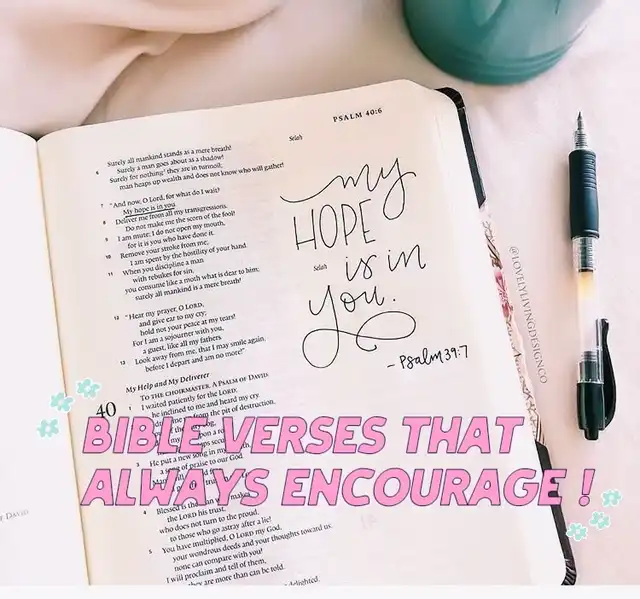 PSALM 40:6
Selah
Surely all mankind stands as a mere breath!
6 Surely a man goes about as a shadow!
Surely for nothing they are in turmoil;
man heaps up wealth and does not know who will gather!
7 "And now, O Lord, for what do I wait?
My hope is in you.
8 Deliver me from all my transgressions.
Do not make me the scorn of the fool!
9 I am mute; I do not open my mouth,
for it is you who have done it.
10 Remove your stroke from me;
I am spent by the hostility of your hand.
11 When you discipline a man
with rebukes for sin,
you consume like a moth what is dear to him;
surely all mankind is a mere breath!
Selah
12 "Hear my prayer, O LORD,
and give ear to my cry;
hold not your peace at my tears!
For I am a sojourner with you,
a guest, like all my fathers.
13 Look away from me, that I may smile again,
before I depart and am no more!"
my
HOPE
is in
you.
-Psalm 39:7
@LOVELYLIVINGDESIGNCO
My Help and My Deliverer
TO THE CHOIRMASTER. A PSALM OF DAVID.
40 I waited patiently for the LORD;
he inclined to me and heard my cry.
from the pit of destruction,
BIBLE VERSES THAT
3 He put a new song in my
a song of praise to our God
ALWAYS ENCOURAGE !
4 Blessed is the man who makes
the LORD his trust,
who does not turn to the proud,
to those who go astray after a lie!
5 You have multiplied, O LORD my God,
your wondrous deeds and your thoughts toward us;
none can compare with you!
I will proclaim and tell of them,
they are more than can be told.
delighted,
OF DAVID